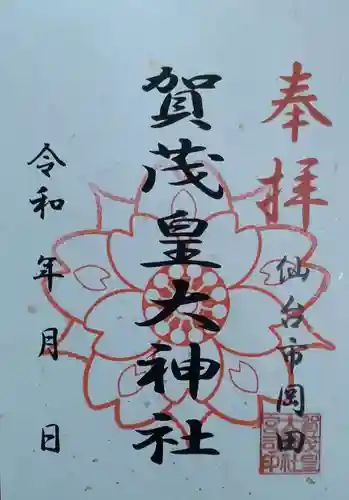 奉拝
仙台市岡田
賀茂皇大神社
令和 年 月 日
賀茂皇
大神社
宮司印